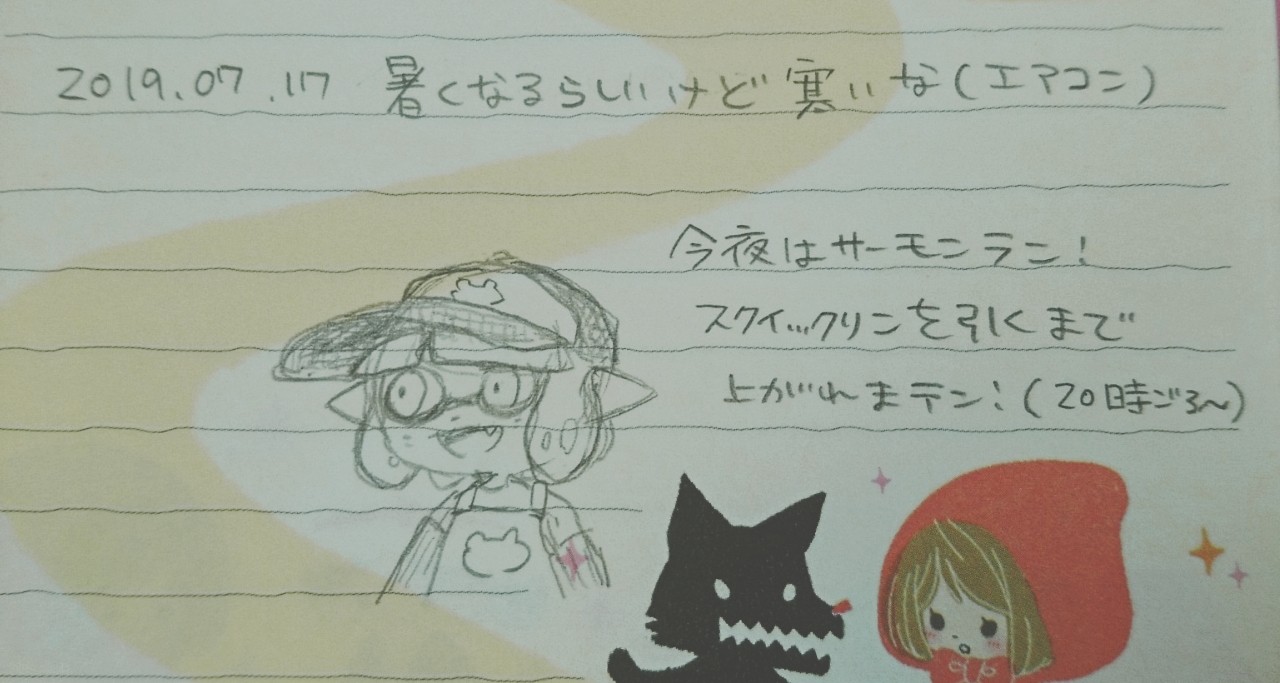 2019.07.17 暑くなるらしいけど寒いな(エアコン)
今夜はサーモンラン!
スクイックリンを引くまで
上がれまテン!(20時ごろ〜)